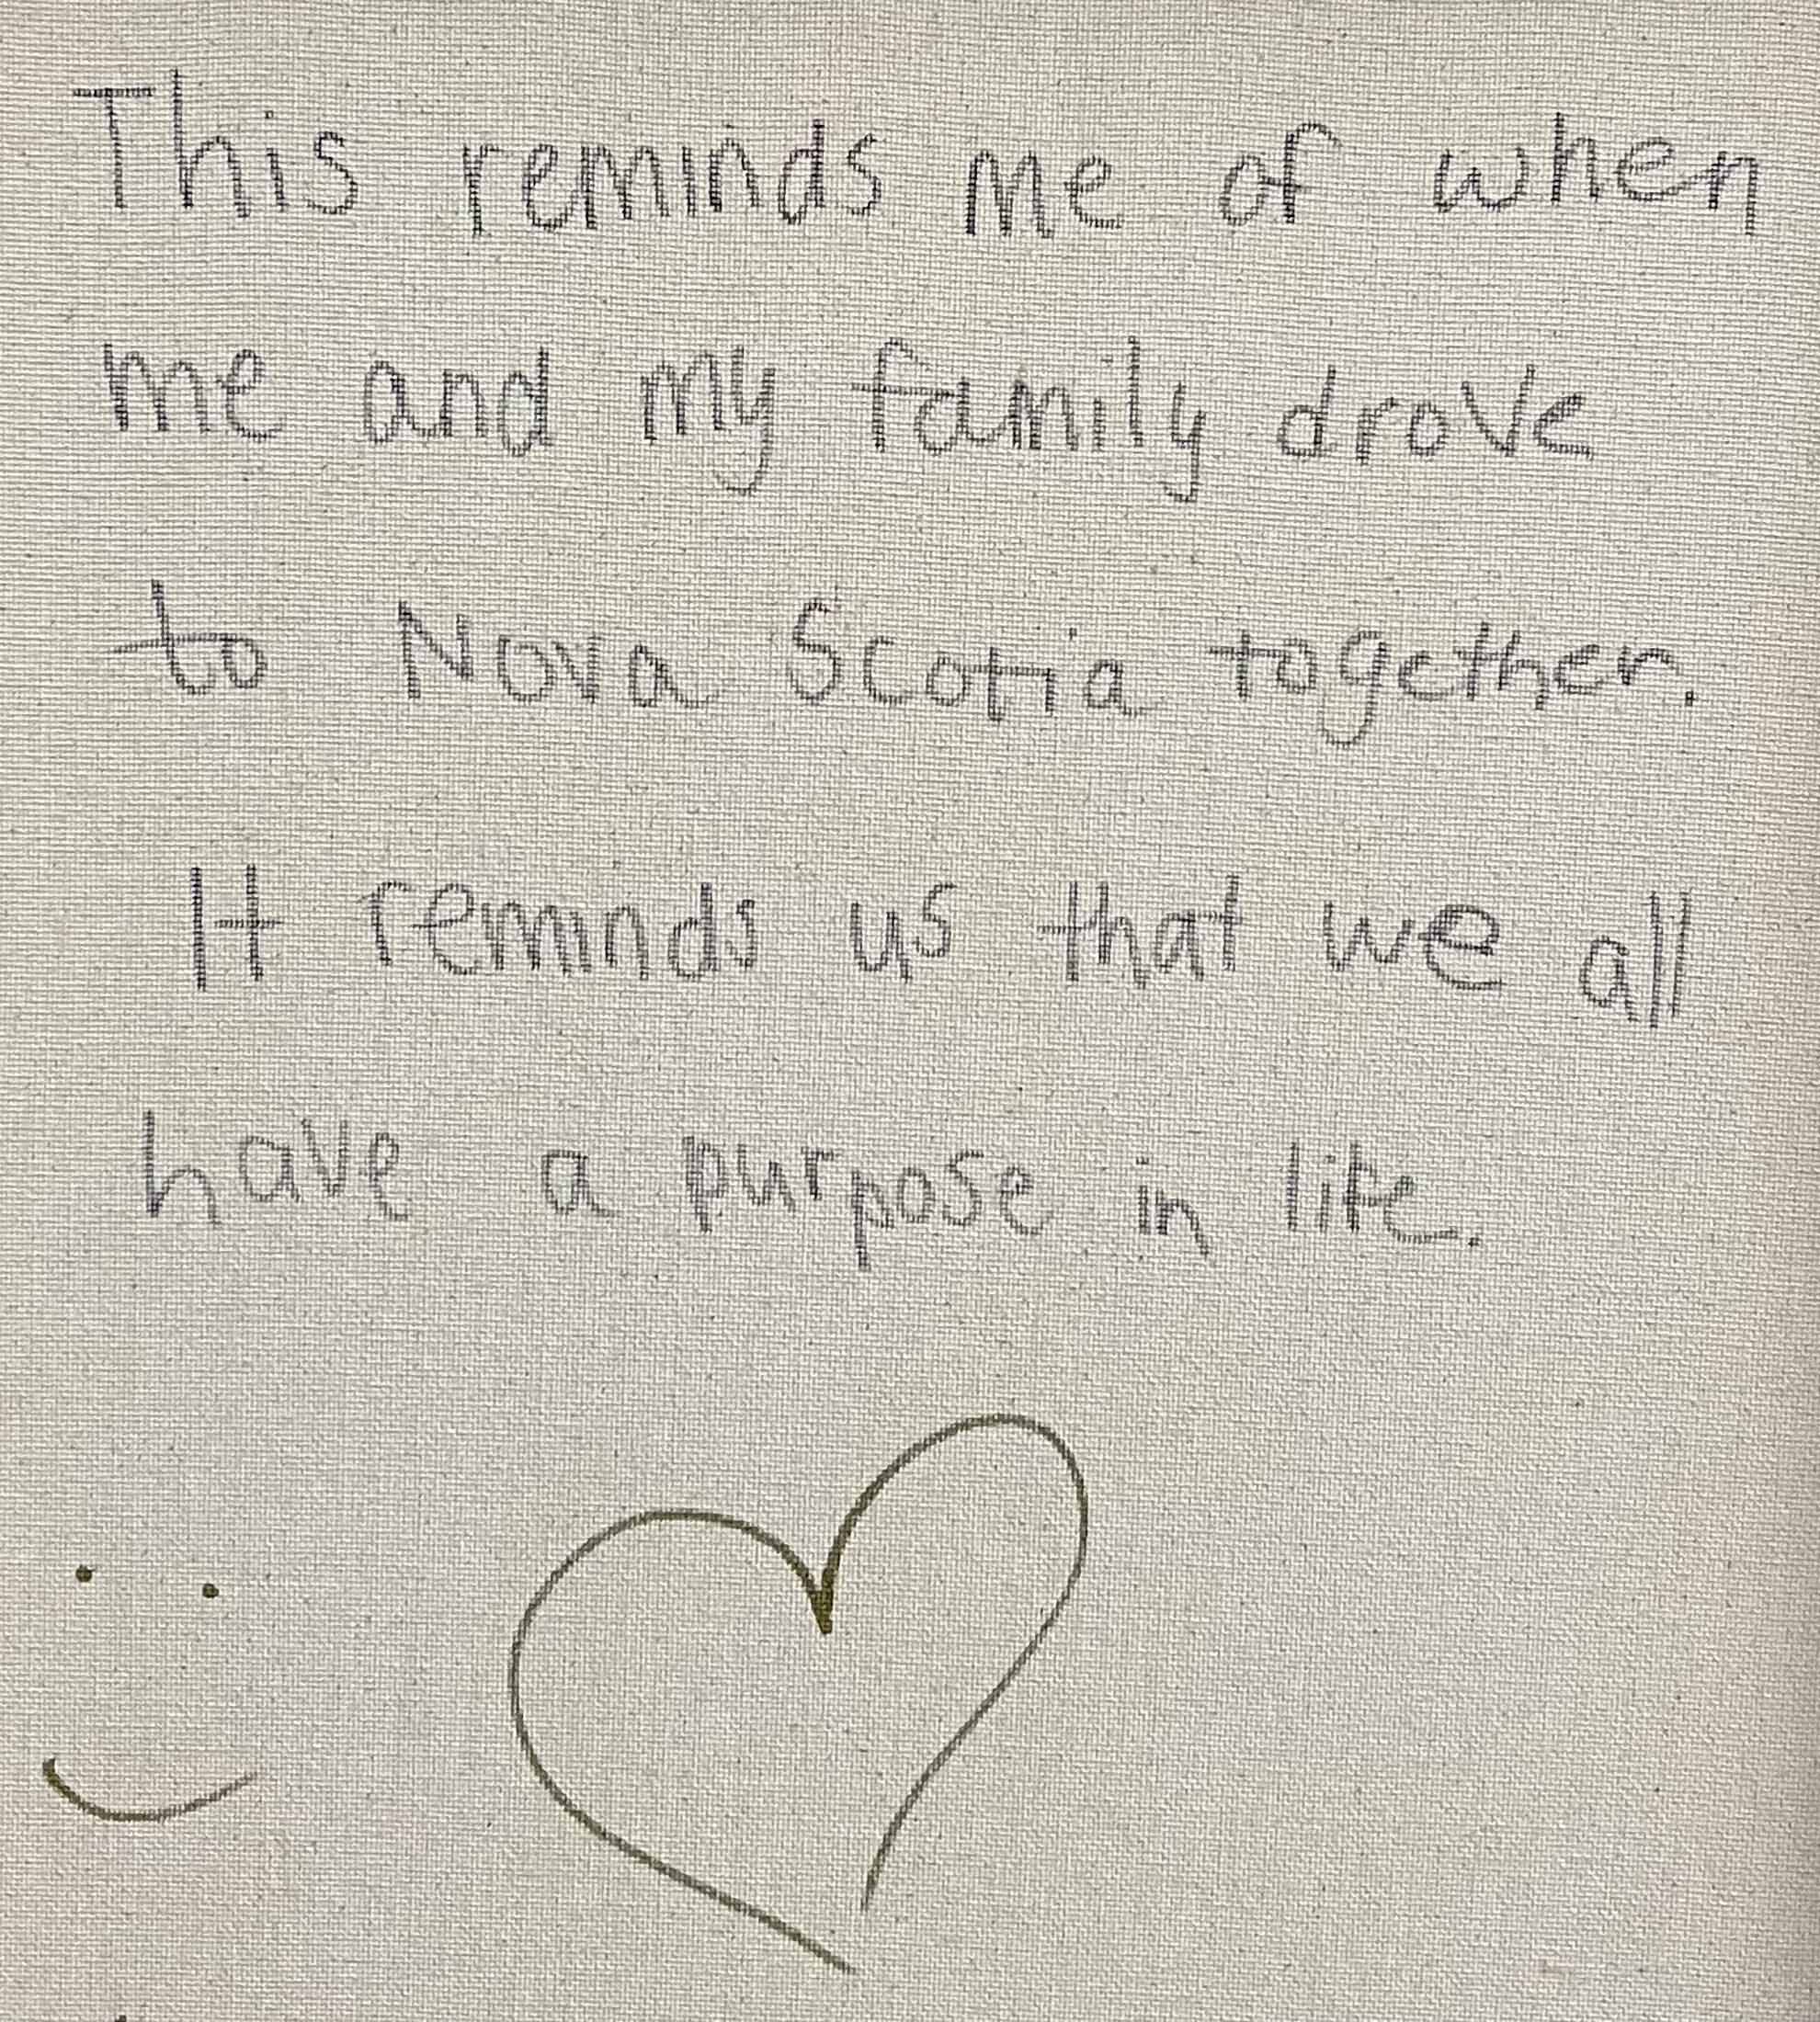 This reminds me of when
me and my family drove
to Nova Scotia together.
It reminds us that we all
have a purpose in life.